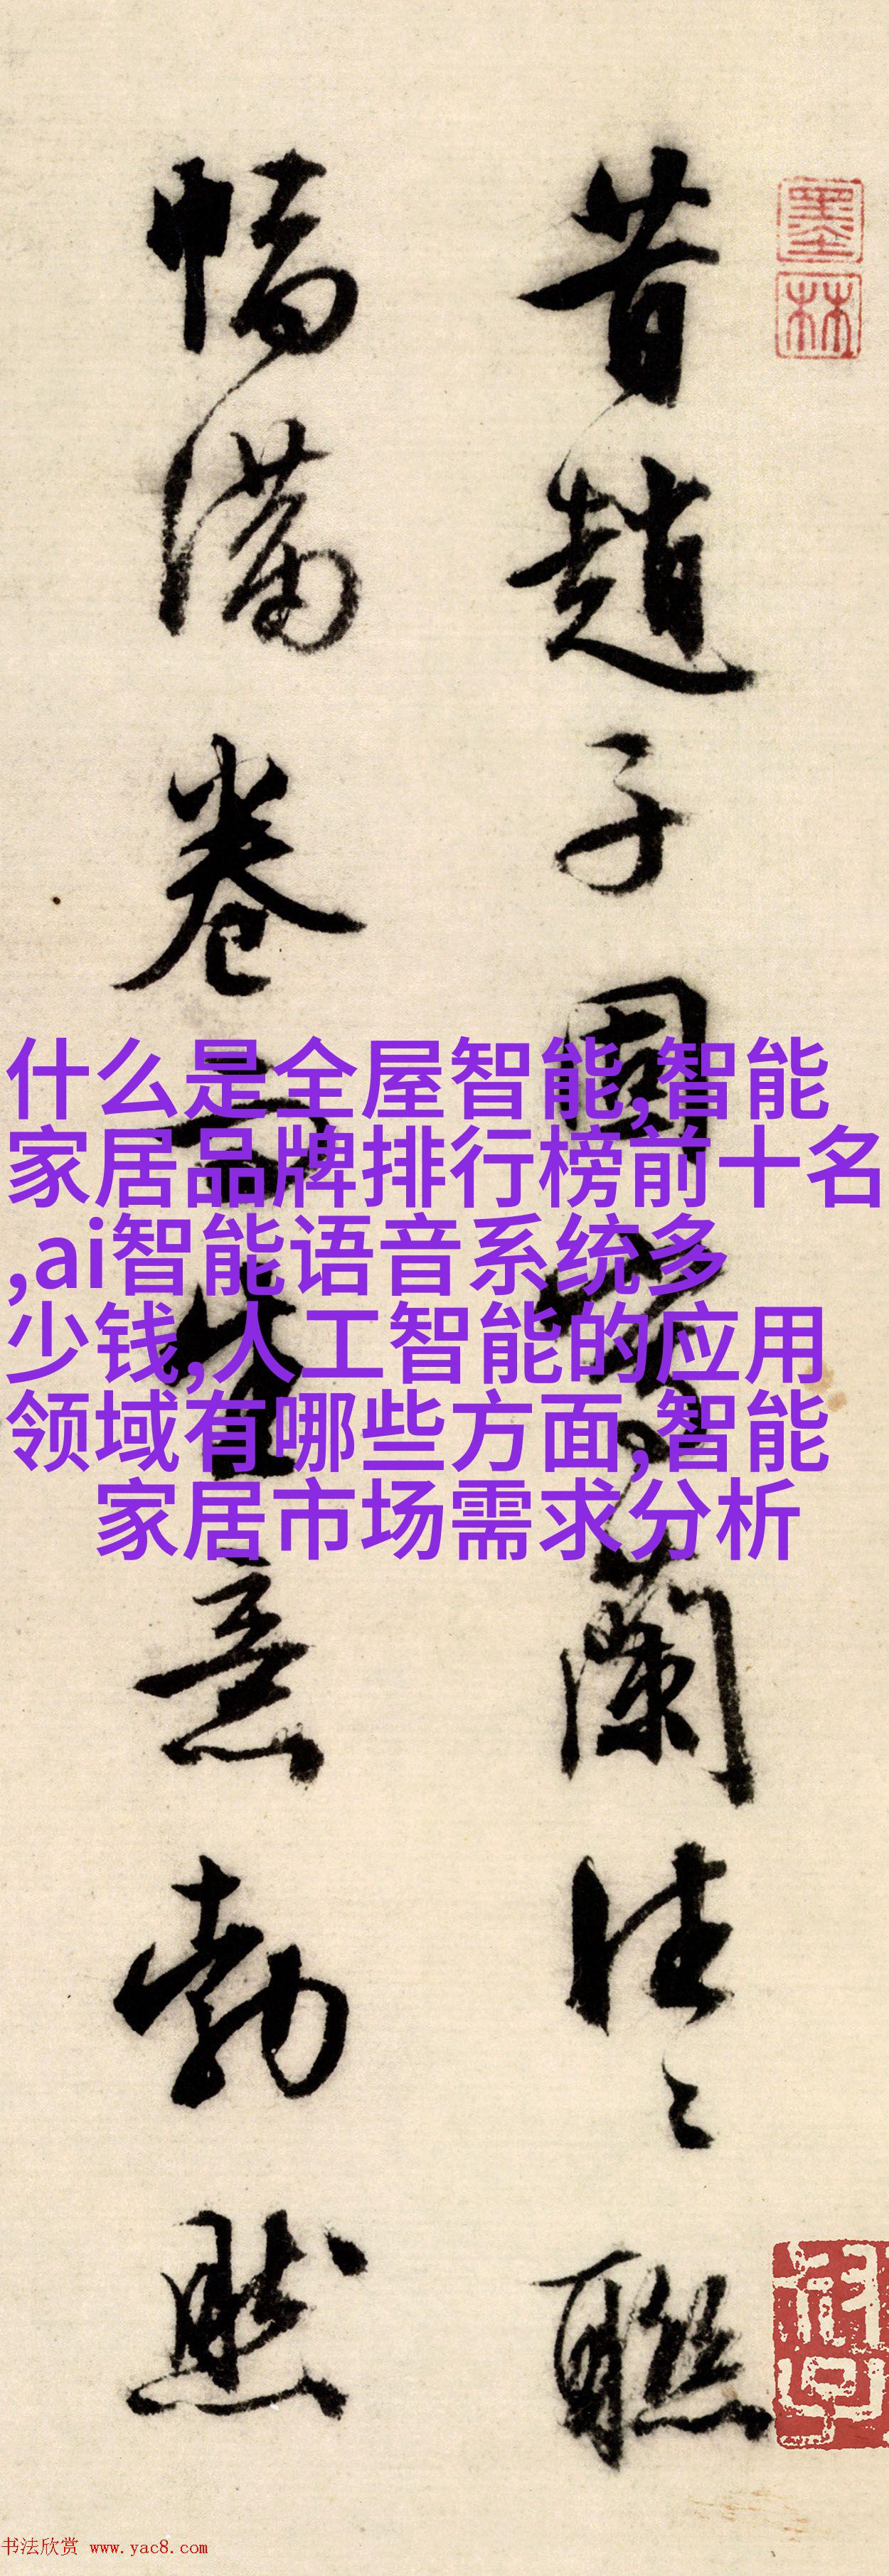 昔趙子固寫蘭往〻聯
幅滿卷而生意勃然
墨林
什么是全屋智能,智能
家居品牌排行榜前十名
,ai智能语音系统多
少钱,人工智能的应用
领域有哪些方面,智能
家居市场需求分析
书法欣赏 www.yac8.com